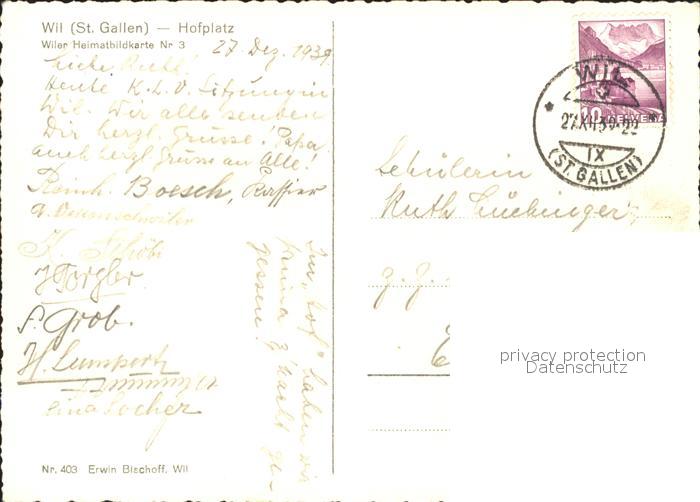 Wil (St. Gallen) — Hofplatz
Wiler Heimatbildkarte Nr 3
27. Dez. 1939
Liebe Ruth!
Heute K.L.V. Sitzung in
Wil. Wir alle senden
Dir herzl. Grüsse! Papa.
auch herzl. Grüsse an Alle!
Reinh. Boesch, Kassier
K. Schöb
J. Torgler
P. Grob.
H. Lumpert
Locher
Im „Hof" haben wir
prima z'Nacht ge-
gessen!
Nr. 403 Erwin Bischoff, Wil
HELVETIA
10
WIL
27.XII.39-22
IX
(ST. GALLEN)
Schülerin
Ruth Lüchinger
z. Z.
E
privacy protection
Datenschutz